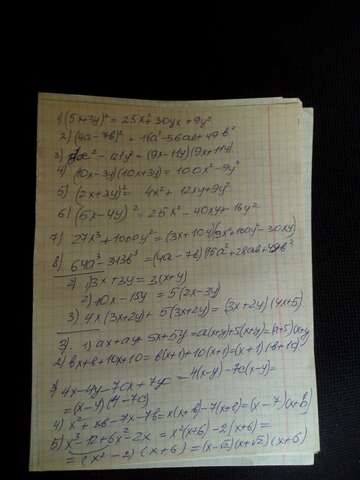 1) (5x+3y)² = 25x² + 30yx + 9y²
2) (4a-7b)² = 16a² - 56ab + 49b²
3) x² - 121y² = (9x-11y)(9x+11y)
4) (10x-3y)(10x+3y) = 100x² - 9y²
5) (2x+3y)² = 4x² + 12xy + 9y²
6) (5x-4y)² = 25x² - 40xy + 16y²
7) 27x³ + 1000y² = (3x+10y)(9x²+100y²-30xy)
8) 64a³ - 343b³ = (4a-7b)(16a²+28ab+49b²)
2) 1) 3x+3y = 3(x+y)
2) 10x - 15y = 5(2x-3y)
3) 4x(3x+2y) + 5(3x+2y) = (3x+2y)(4x+5)
3) 1) ax + ay 5x + 5y = a(x+y) + 5(x+y) = (a+5)(x+y)
2) bx + b + 10x + 10 = b(x+1) + 10(x+1) = (x+1)(b+10)
3) 4x - 4y - 70x + 7y = 4(x-y) - 70(x-y) =
= (x-y)(4-70)
4) x² + xb - 7x - 7b = x(x+b) - 7(x+b) = (x-7)(x+b)
5) x³ - 12 + 6x² - 2x = x²(x+6) - 2(x+6) =
= (x²-2)(x+6) = (x-√2)(x+√2)(x+6)